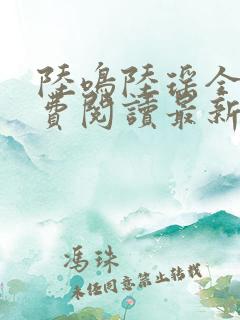 陸鳴陸瑶全
費閱讀最新
馮珠
未任同意禁止转载